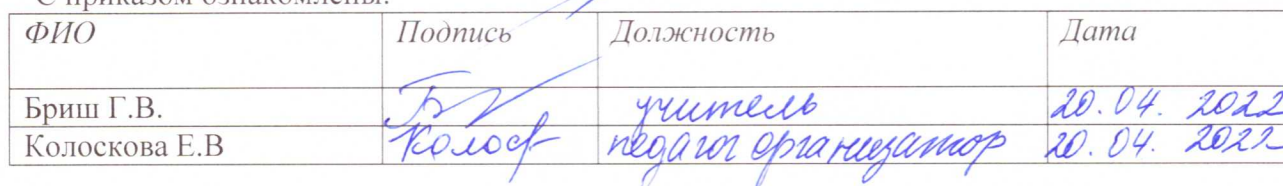 С приказом ознакомлены:
ФИО Подпись Должность Дата
Бриш Г.В. учитель 20.04. 2022
Колоскова Е.В Колоск педагог организатор 20.04. 2022